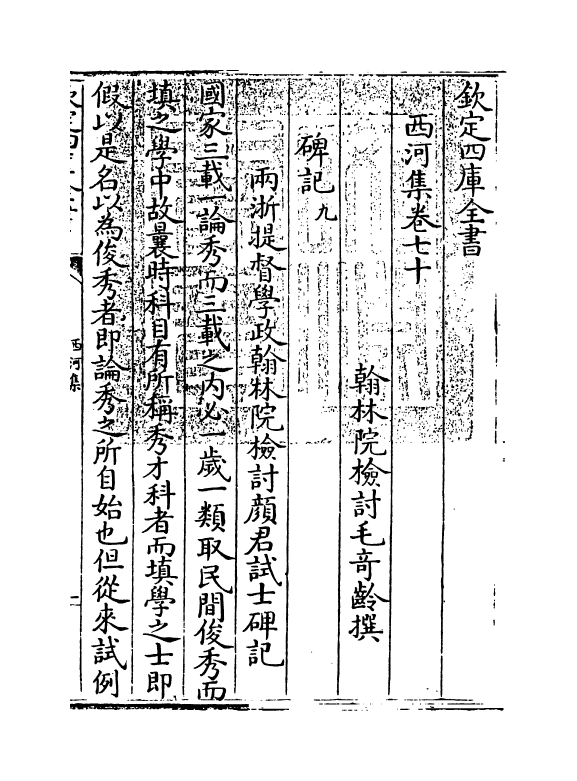 欽定四庫全書
西河集卷七十
翰林院檢討毛奇齡撰
碑記九
兩浙提督學政翰林院檢討顔君試士碑記
國家三載一論秀而三載之内必一歲一類取民間俊秀而
填之學中故曩時科目有所稱秀才科者而填學之士即
假以是名以為俊秀者即論秀之所自始也但從來試例
西河集